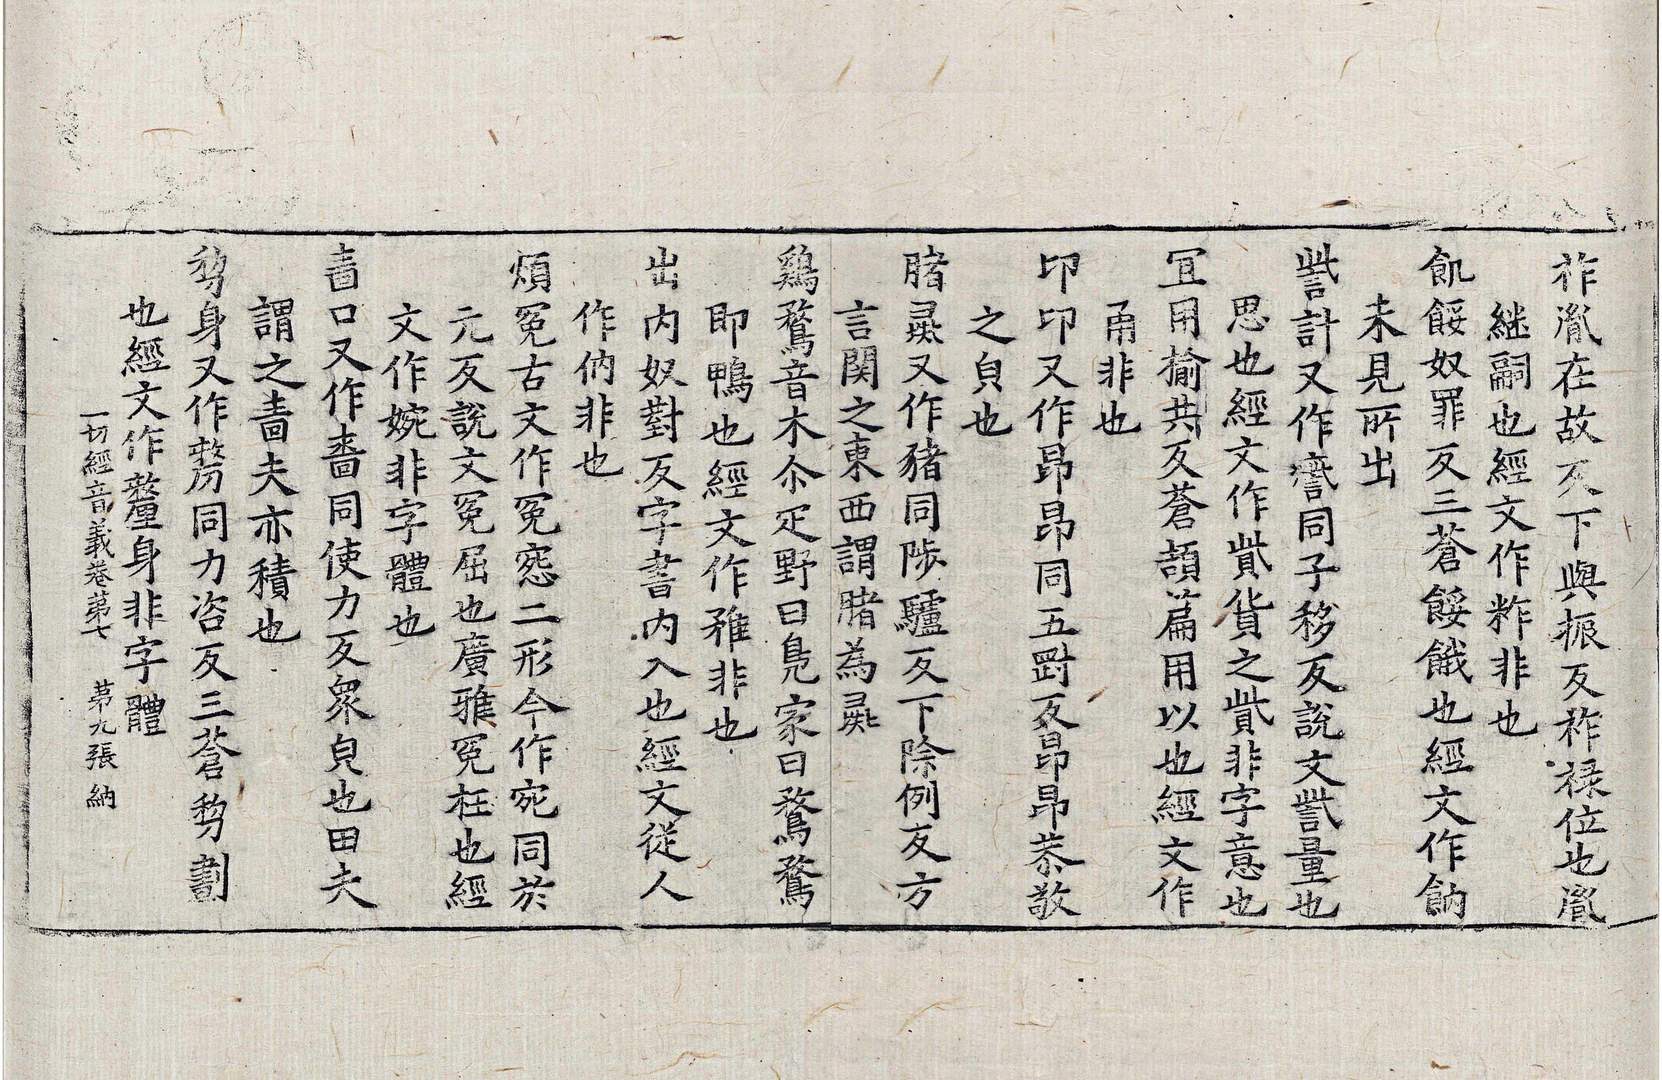 祚胤在故反下與振反祚禄位也胤
継嗣也經文作粼非也
飢餒奴罪反三蒼餒餓也經文作餉
未見所出
訾計又作㱴同子移反說文訾量也
思也經文作貲貨之貲非字意也
冝用揄共反蒼頡篇用以也經文作
甭非也
卬卬又作昂昂同五㽞反昂昂恭敬
之皃也
𦞅㷸又作豬同陟驢反下除例反方
言関之東西謂𦞅為㷸
鷄鶩音木尒疋野曰鳧家曰鶩鶩
即鴨也經文作䧹非也
出内奴對反字書内入也經文従人
作㐻非也
煩冤古文作寃惌二形今作宛同於
元反說文冤屈也廣雅冤枉也經
文作婉非字體也
嗇口又作𤲕同使力反衆皃也田夫
謂之嗇夫亦積也
剺身又作剺同力咨反三蒼剺劃
也經文作釐身非字體
一切經音義卷苐七 苐九張 納